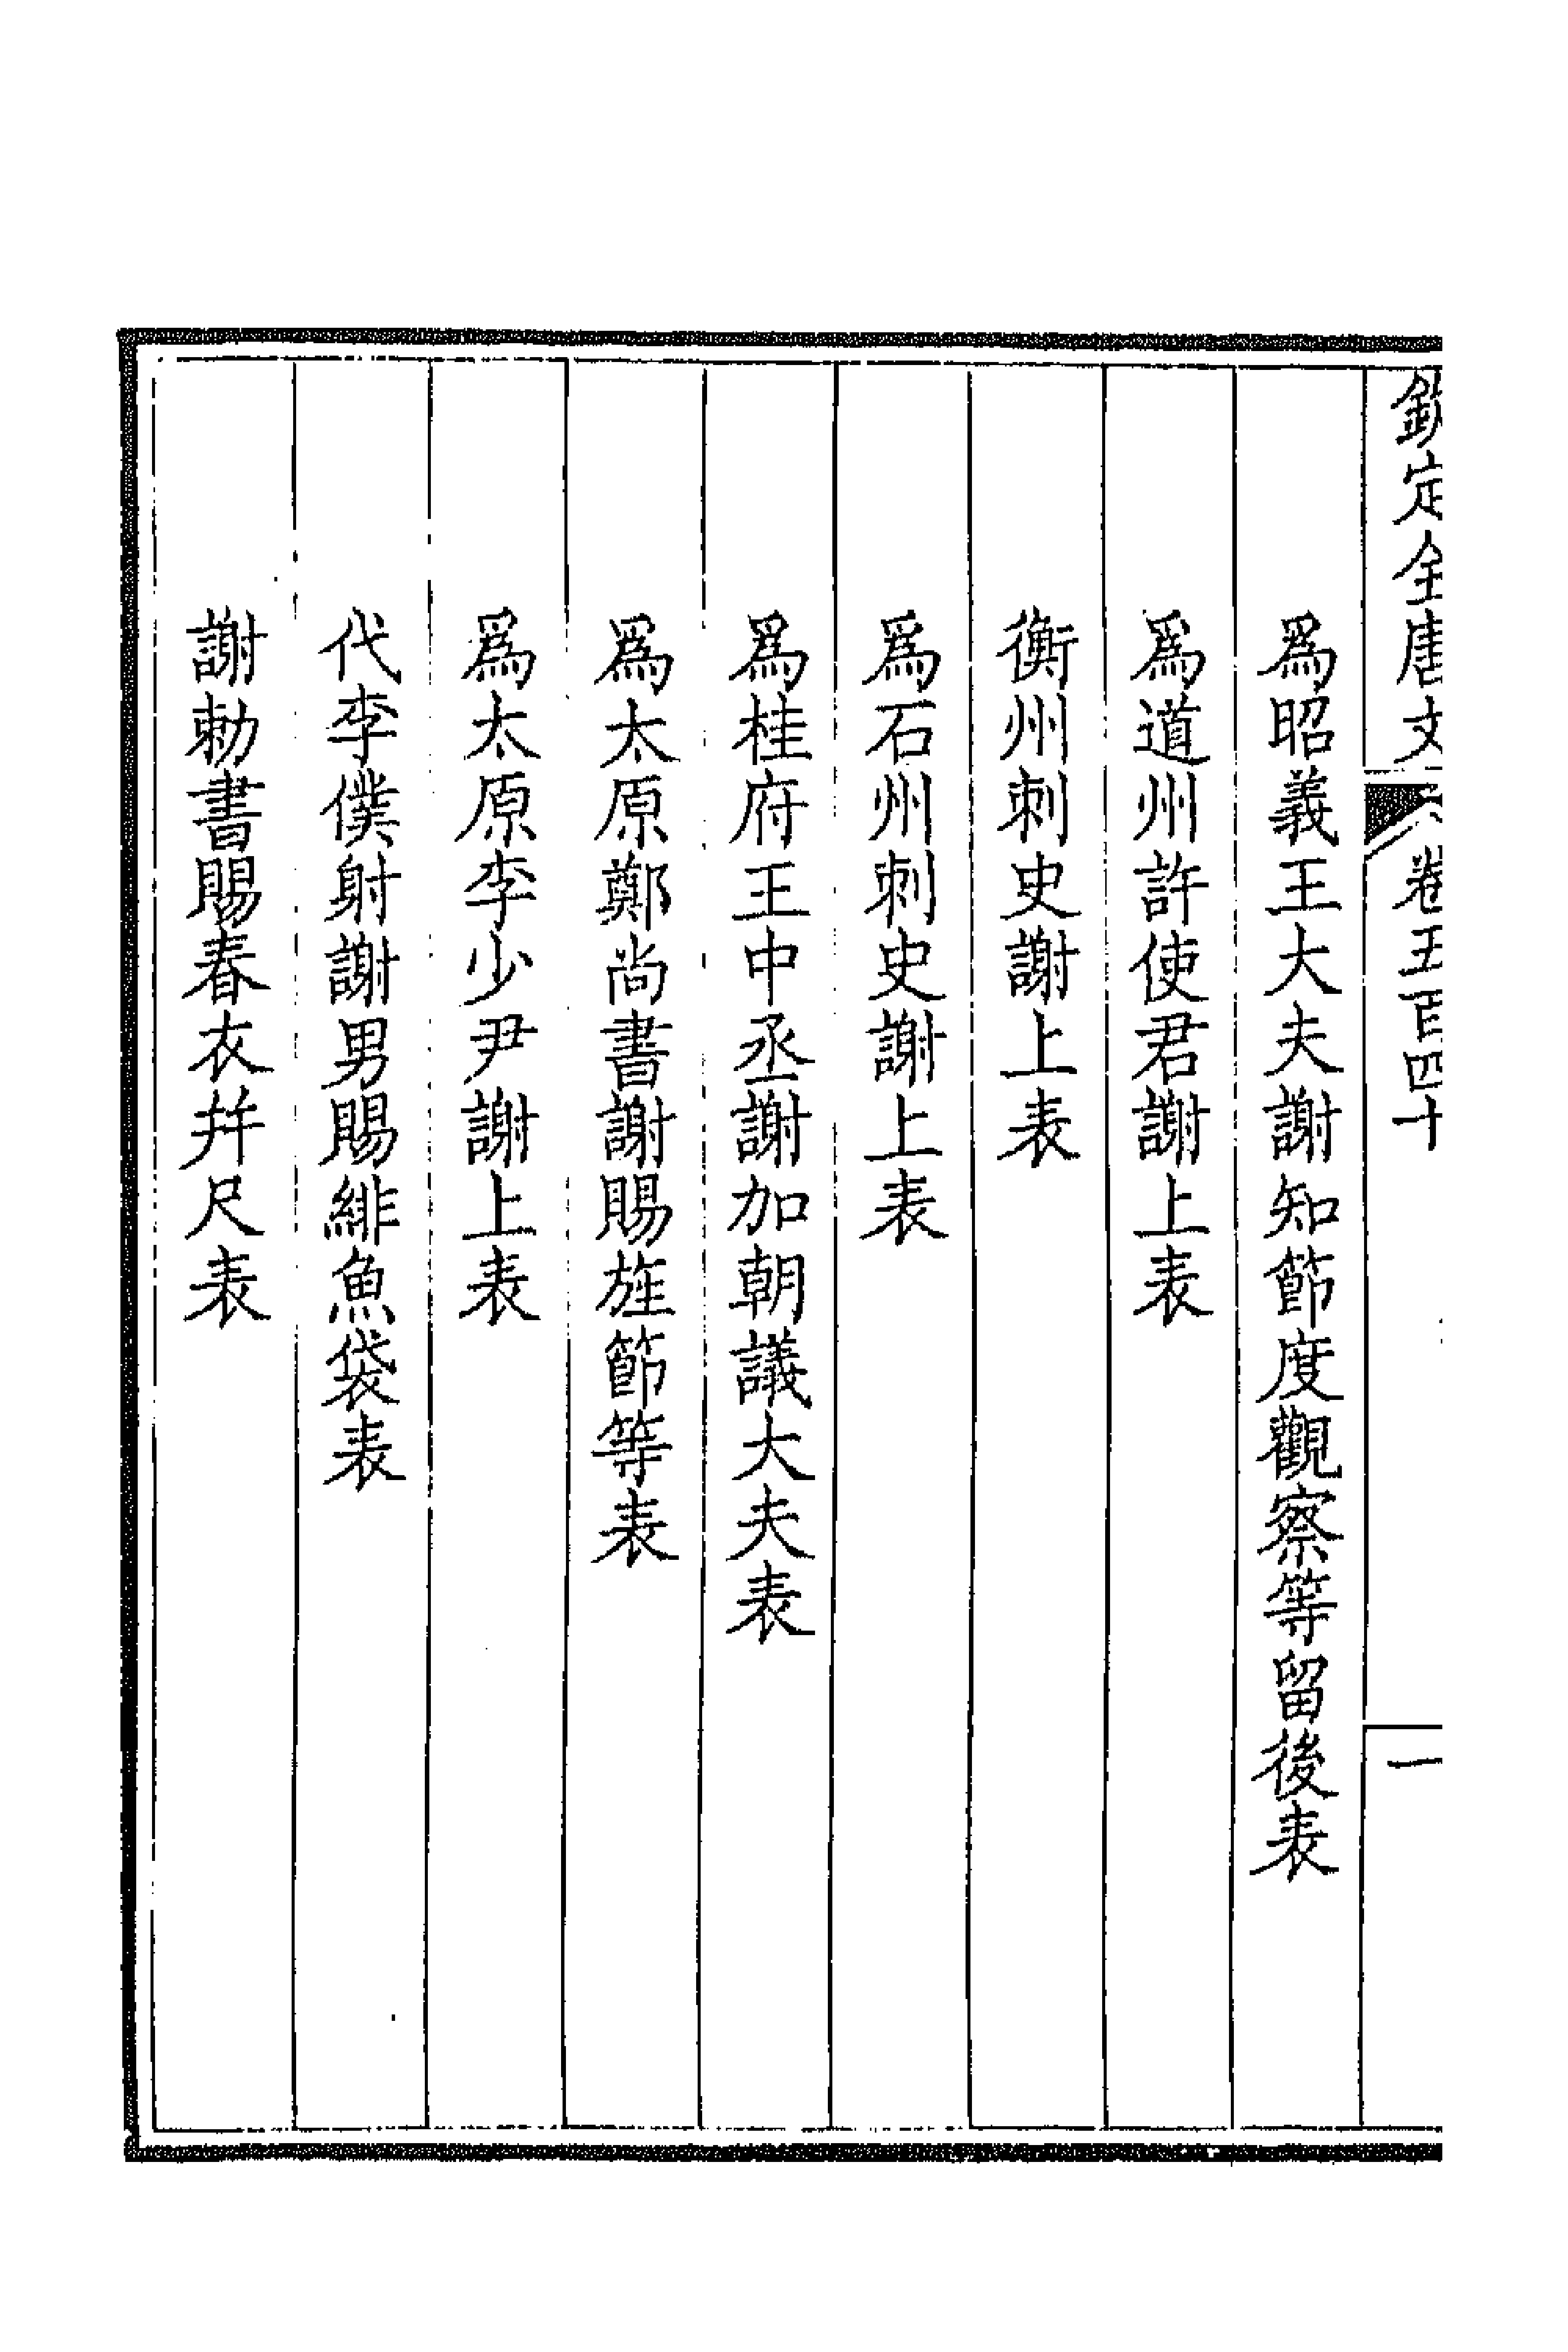 欽定全唐文 卷五百四十 一
爲昭義王大夫謝知節度觀察等留後表
爲道州許使君謝上表
衡州刺史謝上表
爲石州刺史謝上表
爲桂府王中丞謝加朝議大夫表
爲太原鄭尚書謝賜旌節等表
爲太原李少尹謝上表
代李僕射謝男賜緋魚袋表
謝勅書賜春衣幷尺表